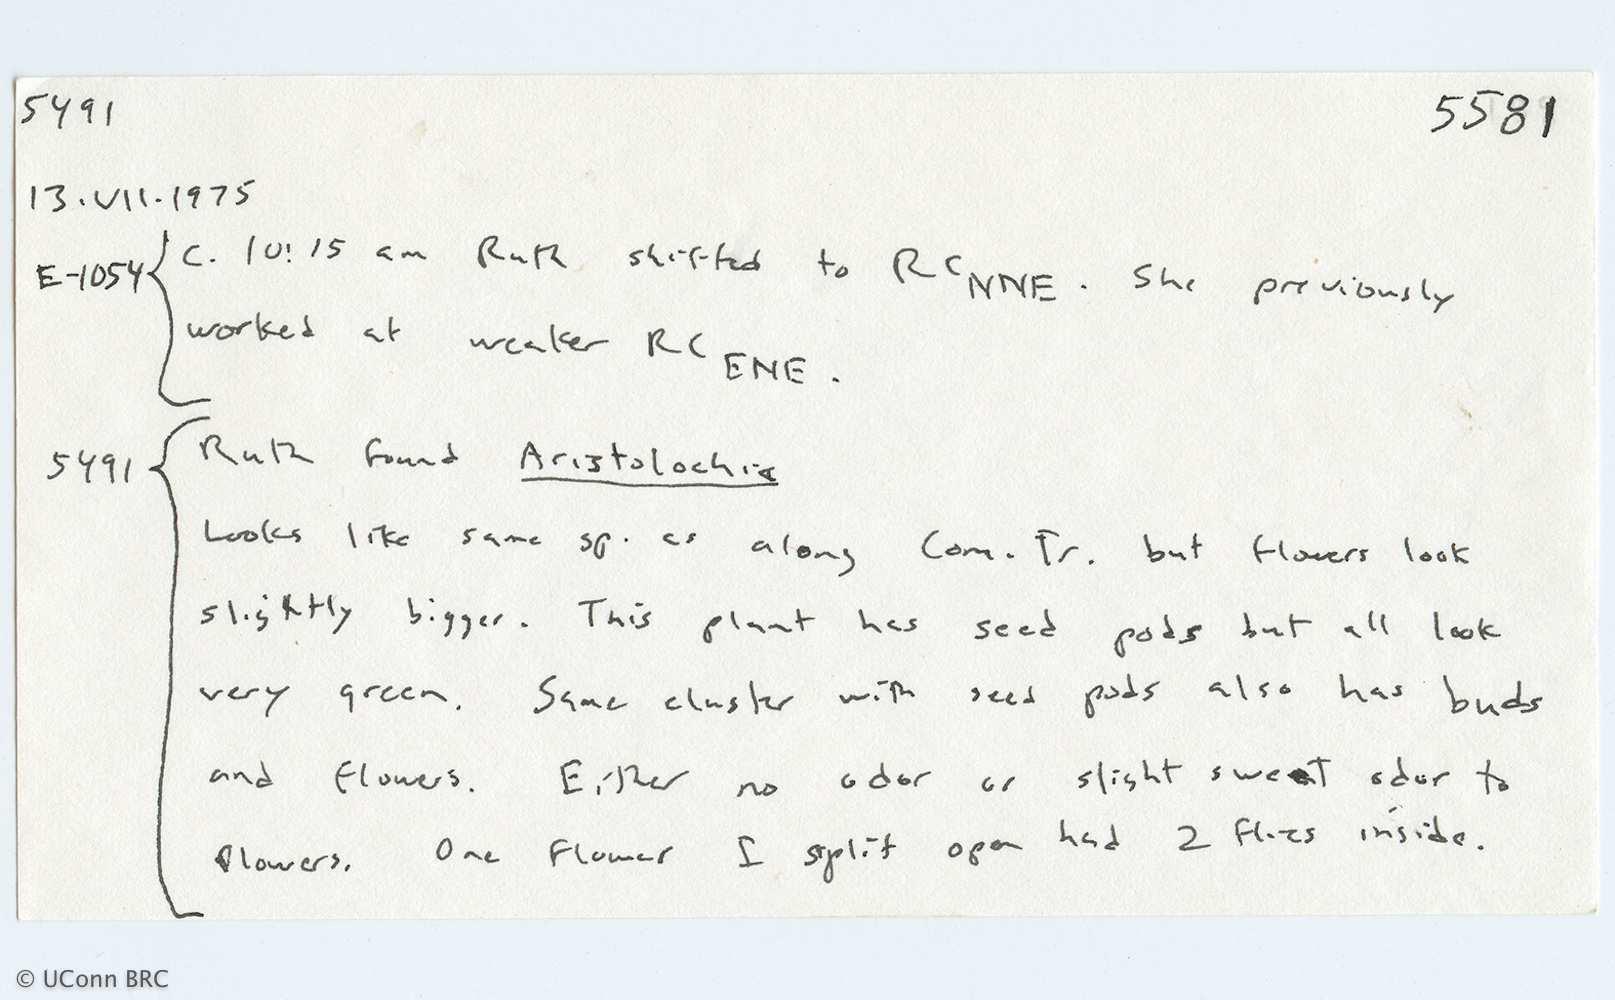 5491 5581
13.VII.1975
E-1054 { C. 10:15 am Ruth shifted to RC NNE. She previously
worked at weaker RC ENE.
5491 { Ruth found Aristolochia
Looks like same sp. as along Com. Tr. but flowers look
slightly bigger. This plant has seed pods but all look
very green. Same cluster with seed pods also has buds
and flowers. Either no odor or slight sweet odor to
flowers. One flower I split open had 2 flies inside.
© UConn BRC